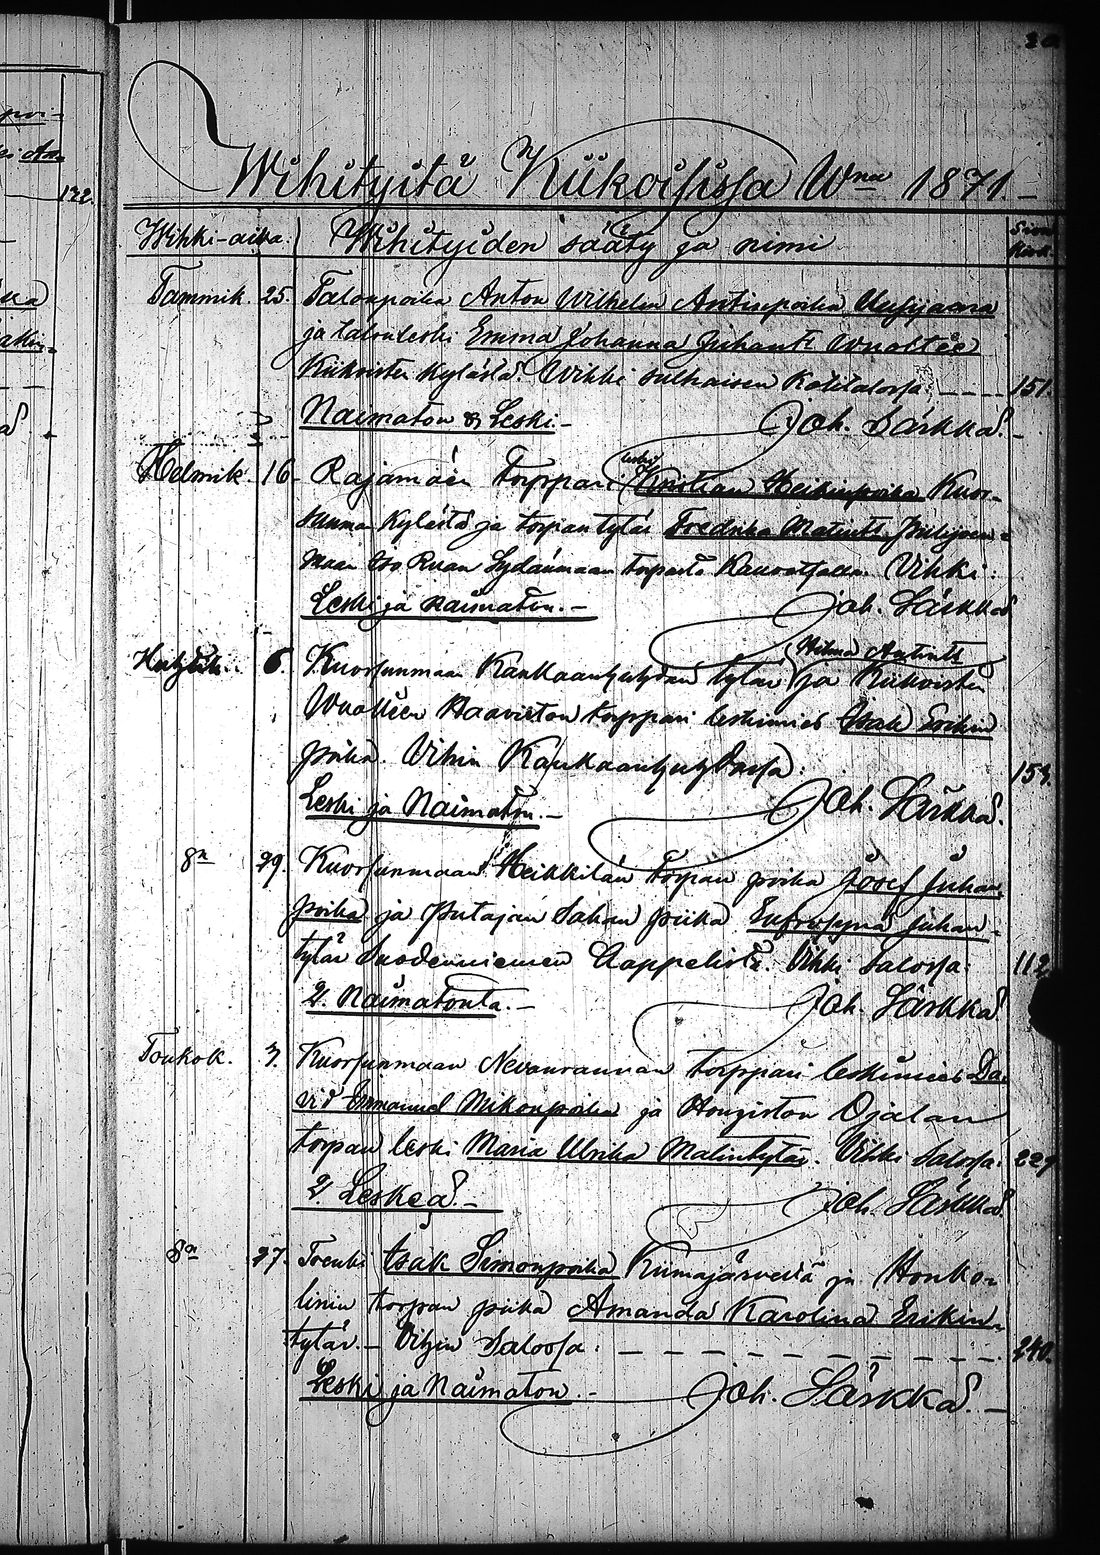 Wihityitä Kiikoisissa Wna 1871.
Wihki-aika. Wihityiden sääty ja nimi Sivu
Tammik. 25. Talonpoika Anton Wilhelm Antinpoika Uusijaara
ja talonleski Emma Johanna Juhant.
Kiikoisten kylästä. Wihki Kotitalossa. 151.
Naimaton & Leski.– Joh. Särkkä.
Helmik. 16. Rajamäen Torppari leski Kristian Heikinpoika Kuor-
sunman kylästä ja torpan tytär Fredrika Matint.
maan Iso Ruan Sydänmaan torpasta Kauvatsalla. Vihki:
Leski ja naimaton.– Joh. Särkkä
Huhtik. 6. Kuorsunmaan Kankaanjuhdan tytär Hilma Antint. ja Kiikoisten
Haaviston torppari leskimies Isak Erkin
poika. Vihin Kankaanjuhdassa: 153.
Leski ja Naimaton.– Joh. Särkkä.
Sn 29. Kuorsunmaan Heikkilän Torpan poika Josef Juhan
poika ja Putajan Sahan piika Eufrosyna Juhan-
tytär Suodenniemen Cappelista. Vihki Salossa: 112
2. Naimatonta.– Joh. Särkkä
Toukok. 7. Kuorsunmaan Nevanrannan torppari leskimies Da-
vid Emmanuel Mikonpoika ja Hongiston Ojalan
torpan leski Maria Ulrika Matintytär. Vihki Salossa: 229
2. Leskeä.– Joh. Särkkä.
Sa 27. Isak Simonpoika Kiimajärveltä ja Honko-
linin torpan piika Amanda Karolina Erikin-
tytär.– Vihin Salossa: 240.
Leski ja Naimaton.– Joh. Särkkä.–
122.